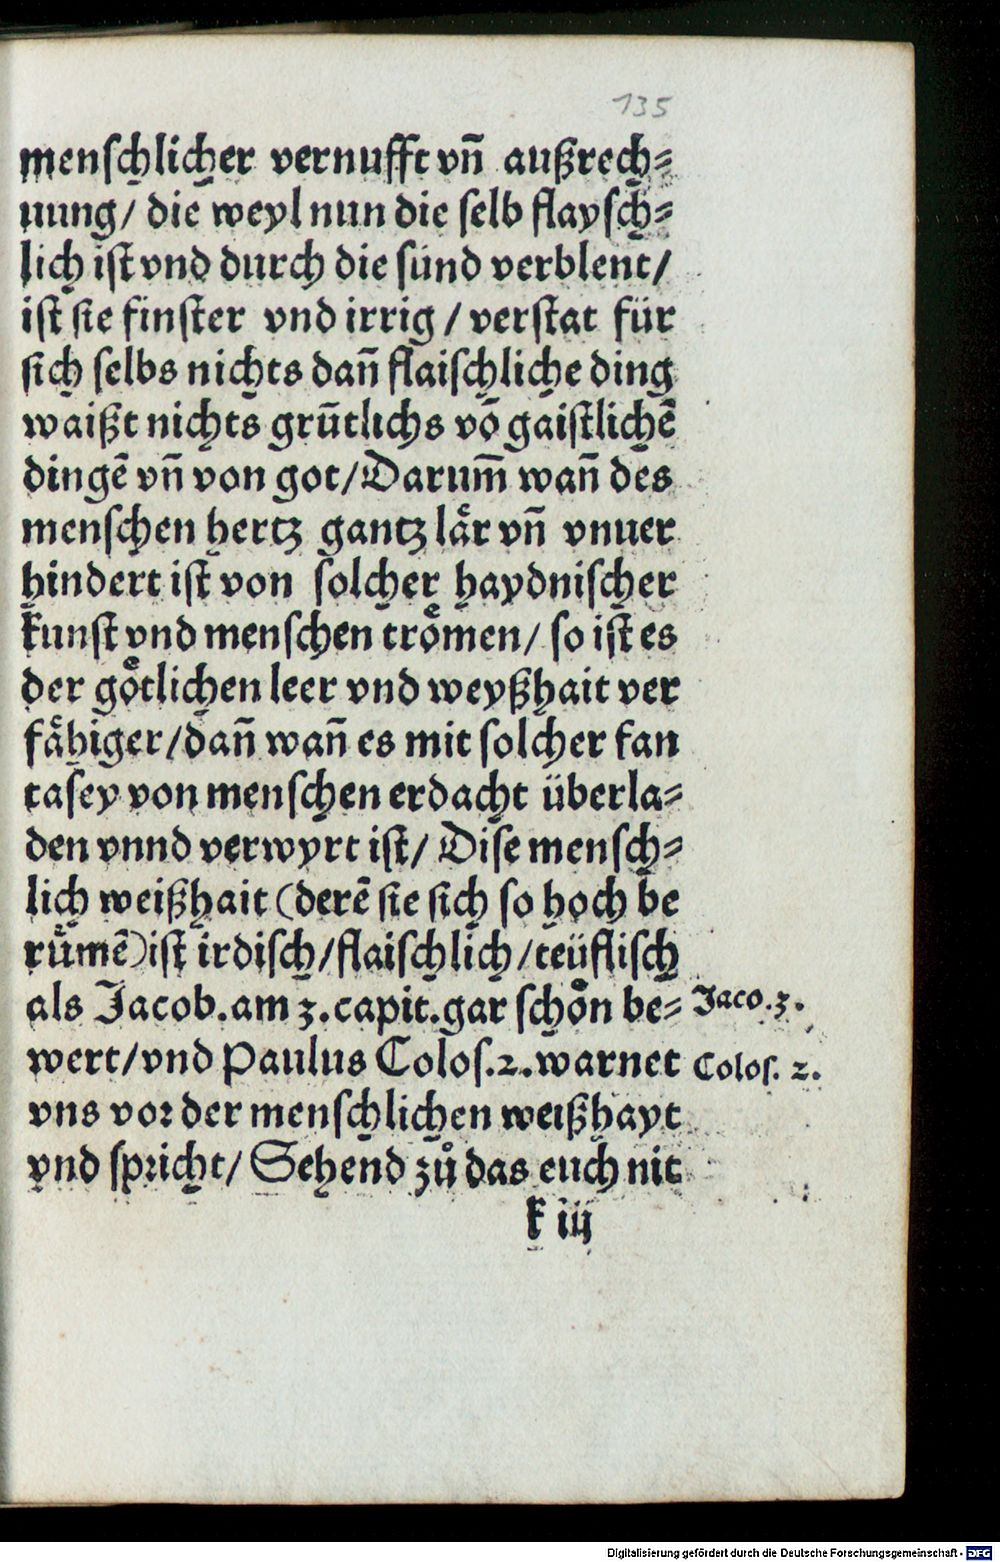 135
menschlicher vernufft vn̄ außrech⸗
uung/ die weyl nun die selb flaysch⸗
lich ist vnd durch die sünd verblent/
ist sie finster vnd irrig / verstat für
sich selbs nichts dan̄ flaischliche ding
waißt nichts grūtlichs vō gaistlichē
dingē vn̄ von got/Darum̄ wan̄ des
menschen hertz gantz laͤr vn̄ vnuer
hindert ist von solcher haydnischer
kunst vnd menschen troͤmen/ so ist es
der goͤtlichen leer vnd weyßhait ver
faͤhiger/dan̄ wan̄ es mit solcher fan
tasey von menschen erdacht überla⸗
den vnnd verwyrt ist/ Dise mensch⸗
lich weißhait (derē sie sich so hoch be
ruͤmē)ist irdisch/flaischlich/teüflisch
als Jacob.am 3.capit.gar schoͤn be⸗ Jaco.3.
wert/vnd Paulus Colos.2.warnet Colos. 2.
vns vor der menschlichen weißhayt
vnd spricht/ Sehend zuͦ das euch nit
k iij
Digitalisierung gefördert durch die Deutsche Forschungsgemeinschaft - DFG